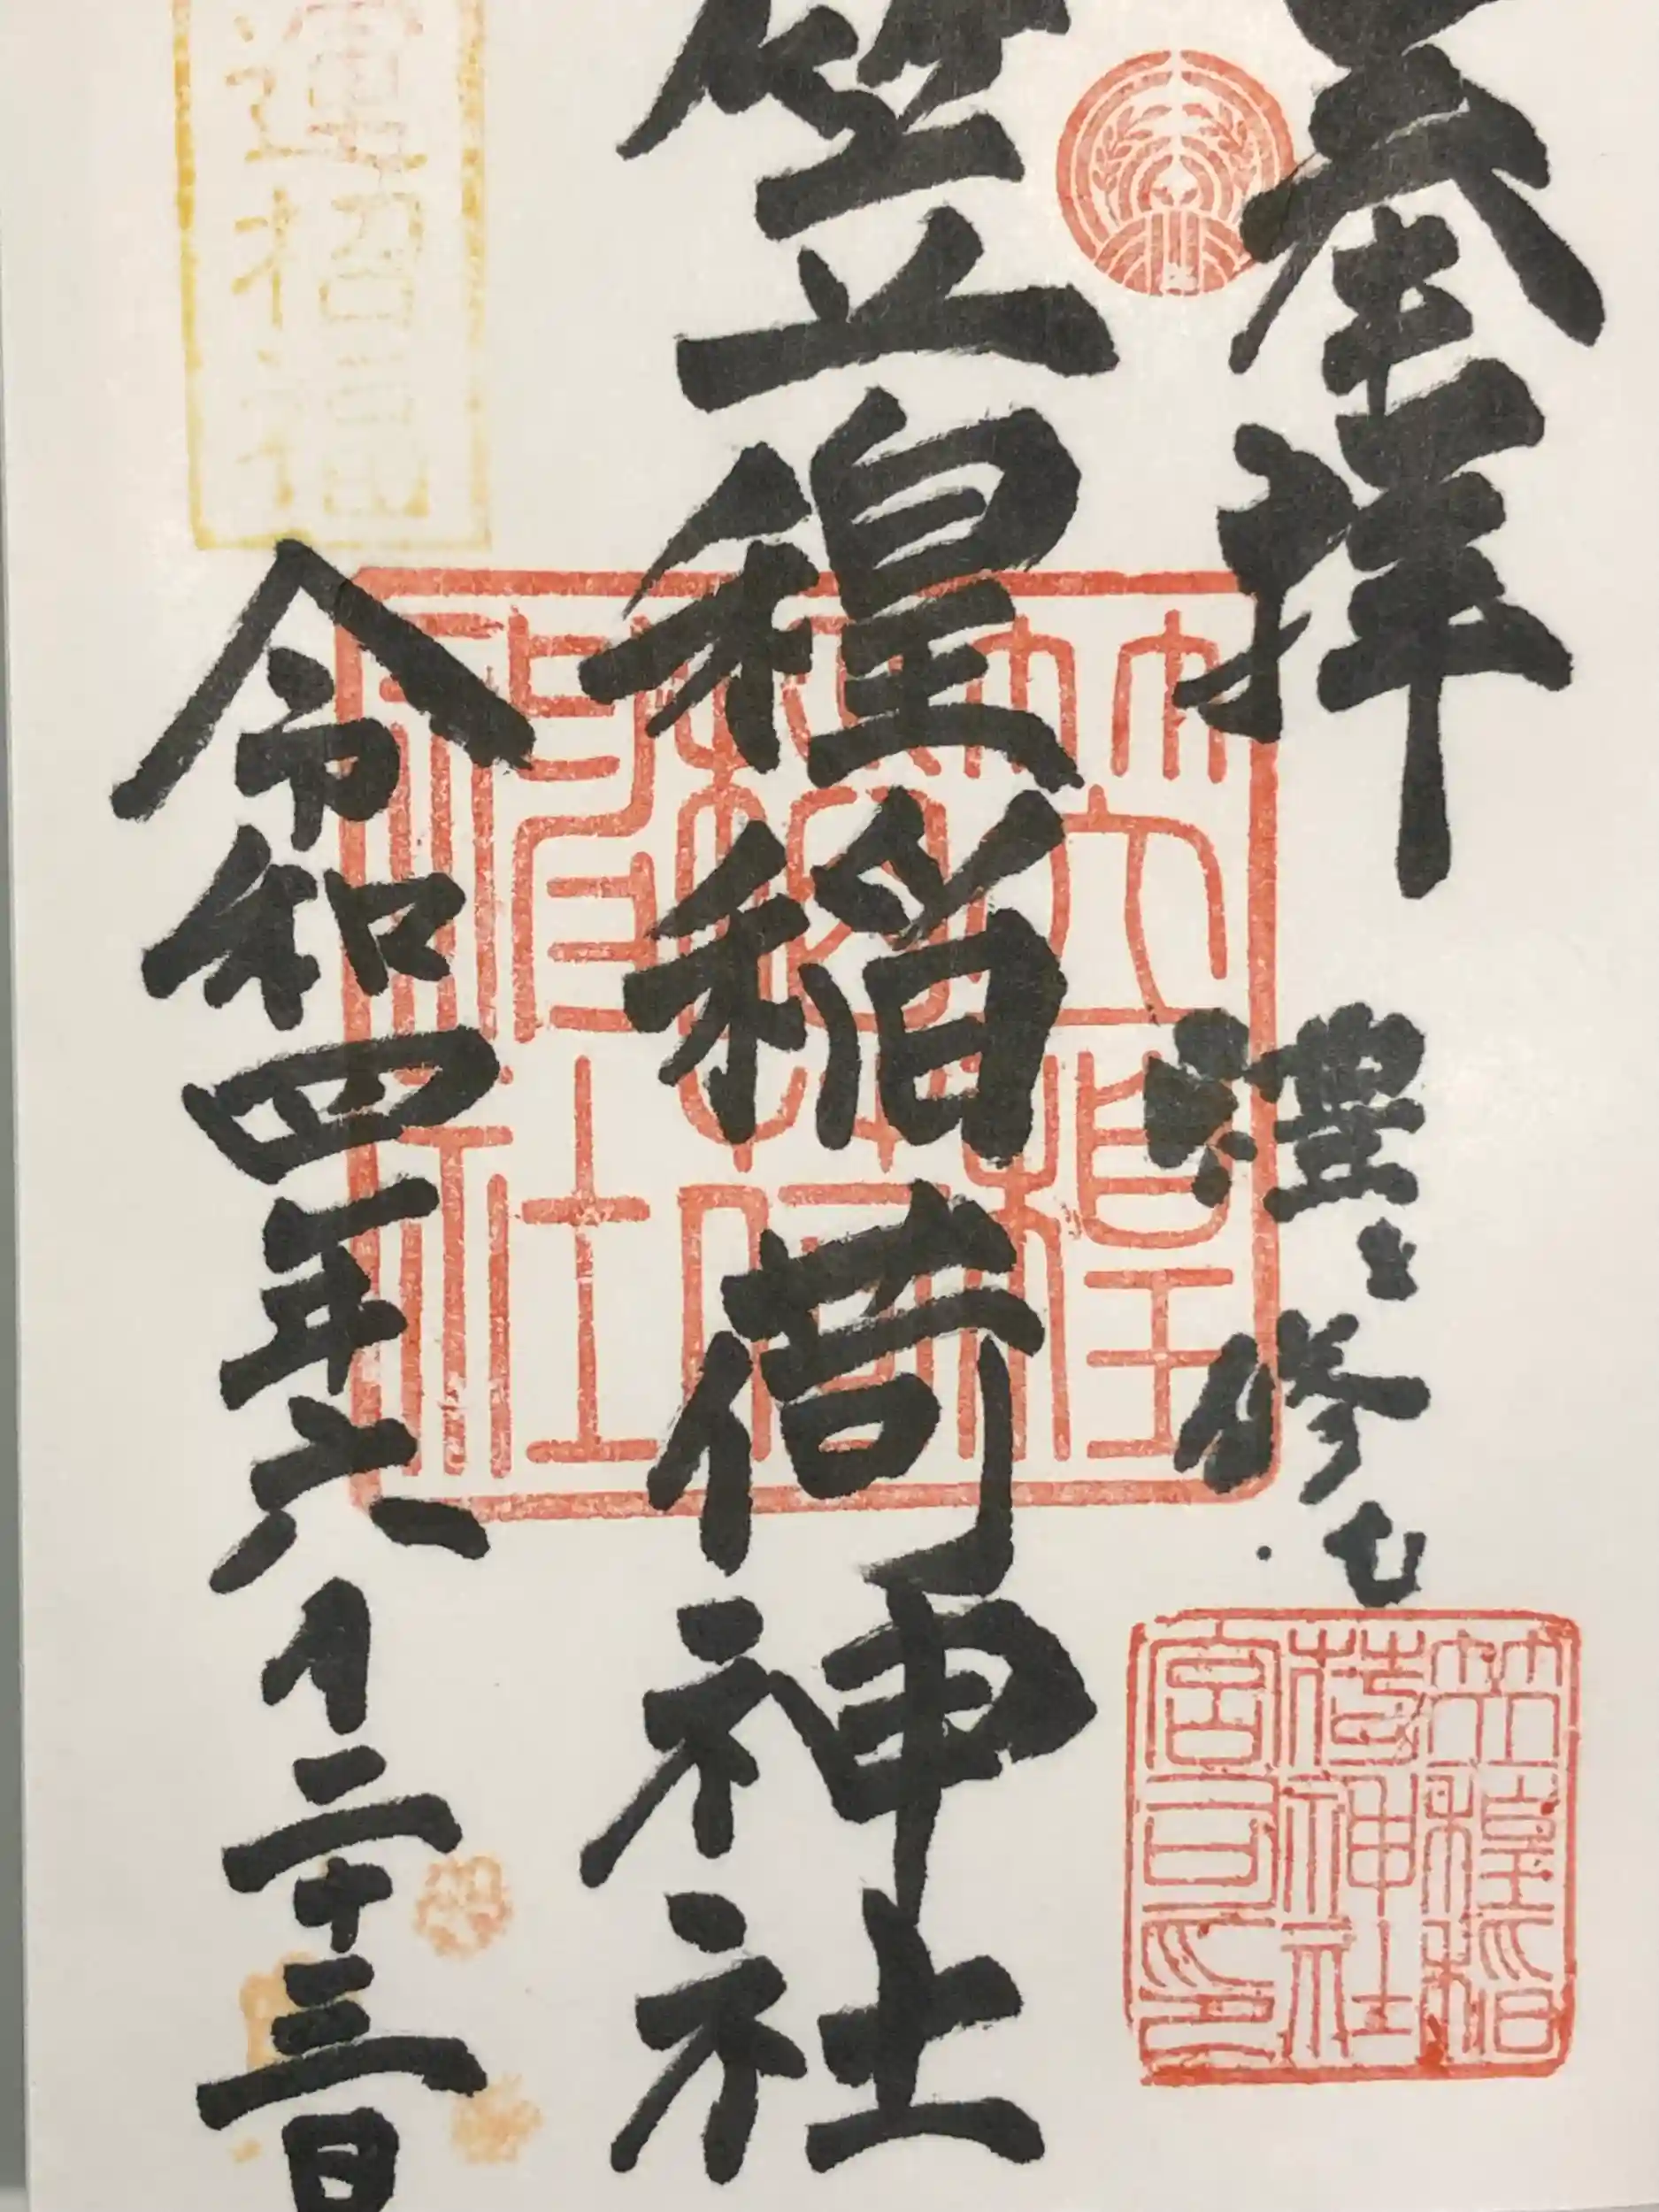 奉拝
禮を修む
笠䅣稲荷神社
令和四年六月二十三日
運招福
笠䅣稲荷神社
笠䅣稲
荷神社
宮司之印